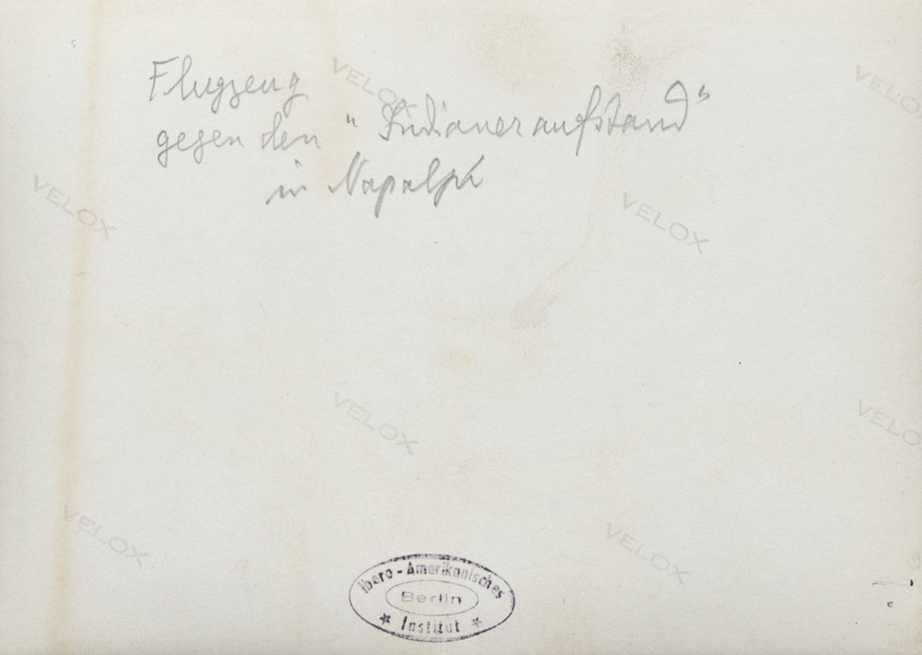 Flugzeug
gegen den "Indianeraufstand"
in Napalpi
VELOX
VELOX
VELOX
VELOX
VELOX
VELOX
VELOX
VELOX
Ibero-Amerikanisches
Berlin
Institut